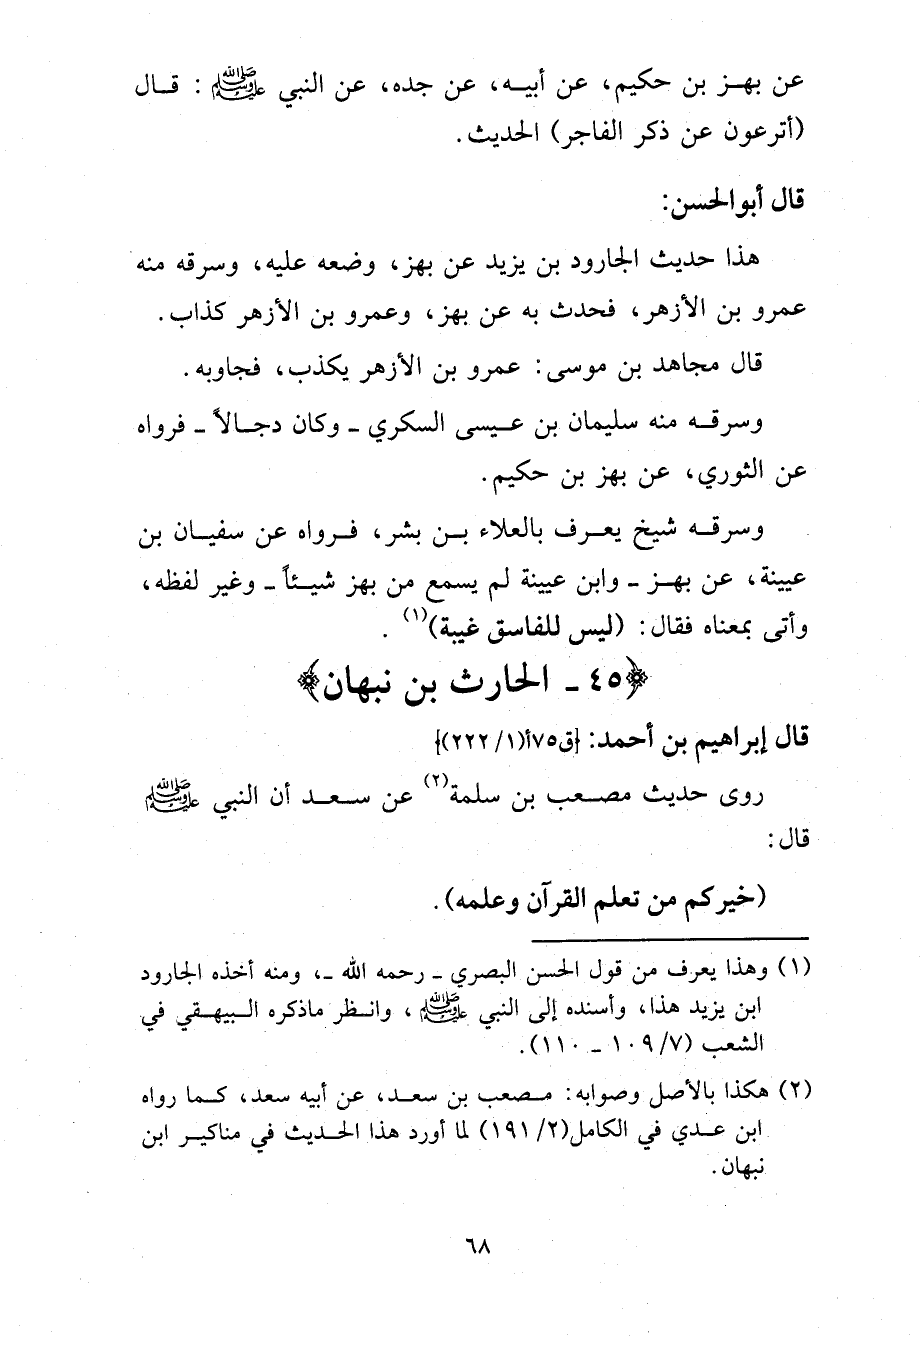 عن بهز بن حكيم، عن أبيه، عن جده، عن النبي ﷺ : قال
(أترعون عن ذكر الفاجر) الحديث.
قال أبوالحسن:
هذا حديث الجارود بن يزيد عن بهز، وضعه عليه، وسرقه منه
عمرو بن الأزهر، فحدث به عن بهز، وعمرو بن الأزهر كذاب.
قال مجاهد بن موسى: عمرو بن الأزهر يكذب، فجاوبه.
وسرقه منه سليمان بن عيسى السكري ـ وكان دجالاً ـ فرواه
عن الثوري، عن بهز بن حكيم.
وسرقه شيخ يعرف بالعلاء بن بشر، فرواه عن سفيان بن
عيينة، عن بهز ـ وابن عيينة لم يسمع من بهز شيئاً ـ وغير لفظه،
وأتى بمعناه فقال: (ليس للفاسق غيبة)(١) .
﴿٤٥ ـ الحارث بن نبهان﴾
قال إبراهيم بن أحمد: {ق٧٥أ(٢٢٢/١)}
روى حديث مصعب بن سلمة(٢) عن سعد أن النبي ﷺ
قال:
(خيركم من تعلم القرآن وعلمه).
(١) وهذا يعرف من قول الحسن البصري ـ رحمه الله ـ، ومنه أخذه الجارود
ابن يزيد هذا، وأسنده إلى النبي ﷺ ، وانظر ماذكره البيهقي في
الشعب (١٠٩/٧ ـ ١١٠).
(٢) هكذا بالأصل وصوابه: مصعب بن سعد، عن أبيه سعد، كما رواه
ابن عدي في الكامل(١٩١/٢) لما أورد هذا الحديث في مناكير ابن
نبهان.
٦٨